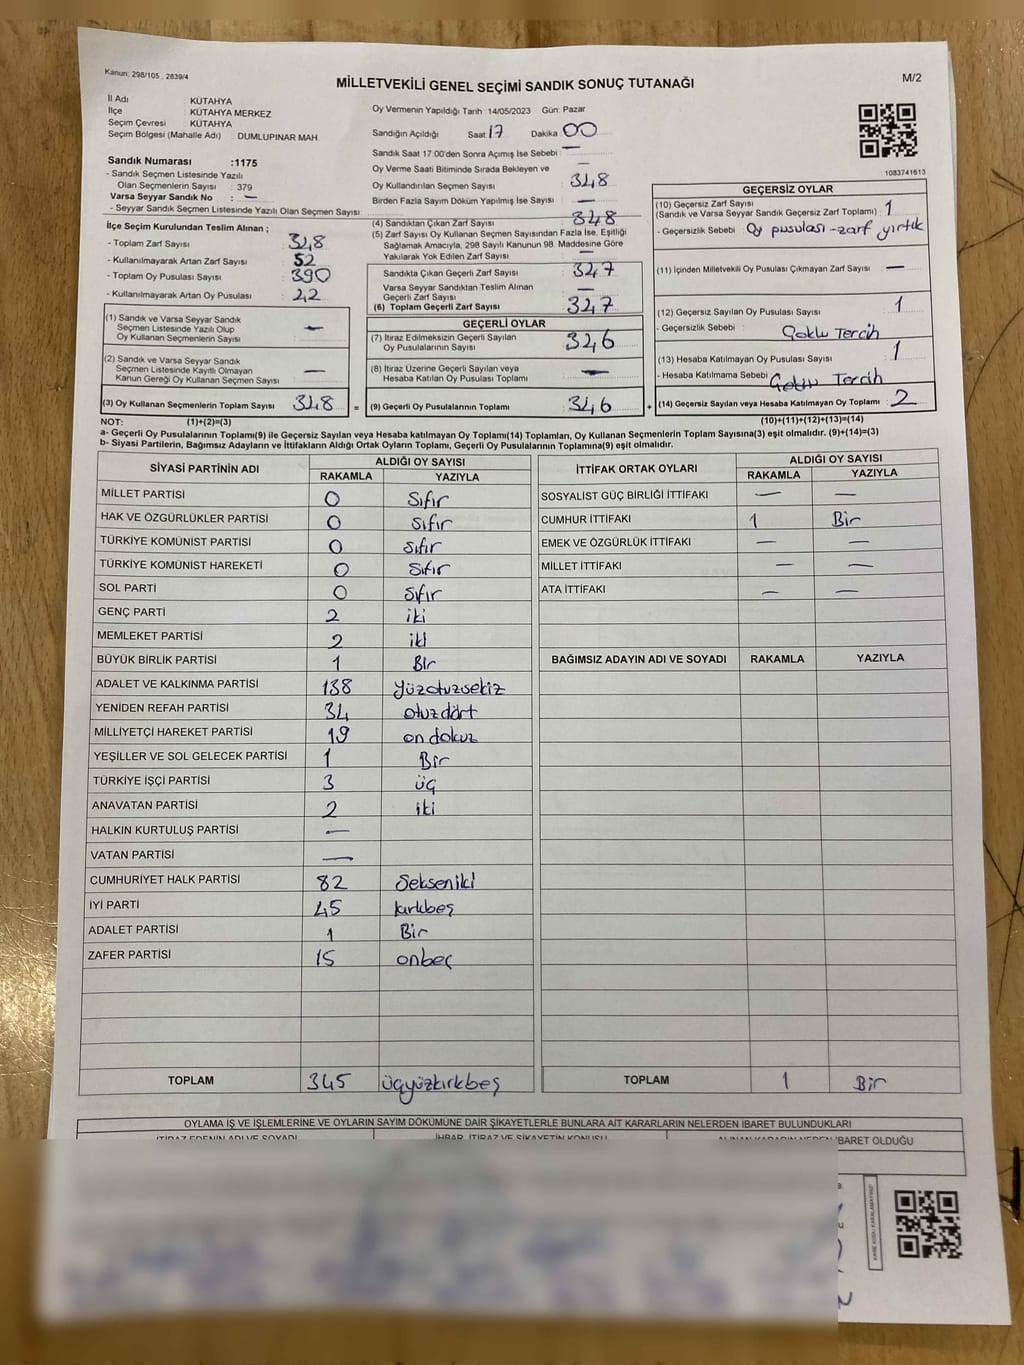 Kanun: 298/105 , 2839/4
MİLLETVEKİLİ GENEL SEÇİMİ SANDIK SONUÇ TUTANAĞI
M/2
İl Adı : KÜTAHYA
İlçe : KÜTAHYA MERKEZ
Seçim Çevresi : KÜTAHYA
Seçim Bölgesi (Mahalle Adı) : DUMLUPINAR MAH.
Sandık Numarası :1175
- Sandık Seçmen Listesinde Yazılı
Olan Seçmenlerin Sayısı : 379
Varsa Seyyar Sandık No : —
- Seyyar Sandık Seçmen Listesinde Yazılı Olan Seçmen Sayısı
İlçe Seçim Kurulundan Teslim Alınan ;
- Toplam Zarf Sayısı 348
- Kullanılmayarak Artan Zarf Sayısı 52
- Toplam Oy Pusulası Sayısı 390
- Kullanılmayarak Artan Oy Pusulası 42
(1) Sandık ve Varsa Seyyar Sandık
Seçmen Listesinde Yazılı Olup
Oy Kullanan Seçmenlerin Sayısı —
(2) Sandık ve Varsa Seyyar Sandık
Seçmen Listesinde Kayıtlı Olmayan
Kanun Gereği Oy Kullanan Seçmen Sayısı —
(3) Oy Kullanan Seçmenlerin Toplam Sayısı 348 =
Oy Vermenin Yapıldığı Tarih :14/05/2023 Gün: Pazar
Sandığın Açıldığı Saat 17 Dakika 00
Sandık Saat 17:00'den Sonra Açımış İse Sebebi : —
Oy Verme Saati Bitiminde Sırada Bekleyen ve —
Oy Kullandırılan Seçmen Sayısı 348
Birden Fazla Sayım Döküm Yapılmış İse Sayısı —
(4) Sandıktan Çıkan Zarf Sayısı 348
(5) Zarf Sayısı Oy Kullanan Seçmen Sayısından Fazla İse, Eşitliği
Sağlamak Amacıyla, 298 Sayılı Kanunun 98. Maddesine Göre
Yakılarak Yok Edilen Zarf Sayısı —
Sandıkta Çıkan Geçerli Zarf Sayısı 347
Varsa Seyyar Sandıktan Teslim Alınan
Geçerli Zarf Sayısı —
(6) Toplam Geçerli Zarf Sayısı 347
GEÇERLİ OYLAR
(7) İtiraz Edilmeksizin Geçerli Sayılan
Oy Pusulalarının Sayısı 346
(8) İtiraz Üzerine Geçerli Sayılan veya
Hesaba Katılan Oy Pusulası Toplamı —
(9) Geçerli Oy Pusulalarının Toplamı 346 +
1083741613
GEÇERSİZ OYLAR
(10) Geçersiz Zarf Sayısı
(Sandık ve Varsa Seyyar Sandık Geçersiz Zarf Toplamı) 1
- Geçersizlik Sebebi : Oy pusulası-zarf yırtık
(11) İçinden Milletvekili Oy Pusulası Çıkmayan Zarf Sayısı —
(12) Geçersiz Sayılan Oy Pusulası Sayısı 1
- Geçersizlik Sebebi : Çoklu Tercih
(13) Hesaba Katılmayan Oy Pusulası Sayısı 1
- Hesaba Katılmama Sebebi Çoklu Tercih
(14) Geçersiz Sayılan veya Hesaba Katılmayan Oy Toplamı 2
NOT: (1)+(2)=(3) (10)+(11)+(12)+(13)=(14)
a- Geçerli Oy Pusulalarının Toplamı(9) ile Geçersiz Sayılan veya Hesaba katılmayan Oy Toplamı(14) Toplamları, Oy Kullanan Seçmenlerin Toplam Sayısına(3) eşit olmalıdır. (9)+(14)=(3)
b- Siyasi Partilerin, Bağımsız Adayların ve İttifakların Aldığı Ortak Oyların Toplamı, Geçerli Oy Pusulalarının Toplamına(9) eşit olmalıdır.
SİYASİ PARTİNİN ADI ALDIĞI OY SAYISI
RAKAMLA YAZIYLA
MİLLET PARTİSİ 0 Sıfır
HAK VE ÖZGÜRLÜKLER PARTİSİ 0 Sıfır
TÜRKİYE KOMÜNİST PARTİSİ 0 Sıfır
TÜRKİYE KOMÜNİST HAREKETİ 0 Sıfır
SOL PARTİ 0 Sıfır
GENÇ PARTİ 2 iki
MEMLEKET PARTİSİ 2 iki
BÜYÜK BİRLİK PARTİSİ 1 Bir
ADALET VE KALKINMA PARTİSİ 138 Yüzotuzsekiz
YENİDEN REFAH PARTİSİ 34 otuzdört
MİLLİYETÇİ HAREKET PARTİSİ 19 ondokuz
YEŞİLLER VE SOL GELECEK PARTİSİ 1 Bir
TÜRKİYE İŞÇİ PARTİSİ 3 üç
ANAVATAN PARTİSİ 2 iki
HALKIN KURTULUŞ PARTİSİ —
VATAN PARTİSİ —
CUMHURİYET HALK PARTİSİ 82 Sekseniki
İYİ PARTİ 45 kırkbeş
ADALET PARTİSİ 1 Bir
ZAFER PARTİSİ 15 onbeş
TOPLAM 345 üçyüzkırkbeş
İTTİFAK ORTAK OYLARI ALDIĞI OY SAYISI
RAKAMLA YAZIYLA
SOSYALİST GÜÇ BİRLİĞİ İTTİFAKI — —
CUMHUR İTTİFAKI 1 Bir
EMEK VE ÖZGÜRLÜK İTTİFAKI — —
MİLLET İTTİFAKI — —
ATA İTTİFAKI — —
BAĞIMSIZ ADAYIN ADI VE SOYADI RAKAMLA YAZIYLA
TOPLAM 1 Bir
OYLAMA İŞ VE İŞLEMLERİNE VE OYLARIN SAYIM DÖKÜMÜNE DAİR ŞİKAYETLERLE BUNLARA AİT KARARLARIN NELERDEN İBARET BULUNDUKLARI
İTİRAZ EDENİN ADI VE SOYADI İHBAR, İTİRAZ VE ŞİKAYETİN KONUSU ALINAN KARARIN NEDEN İBARET OLDUĞU